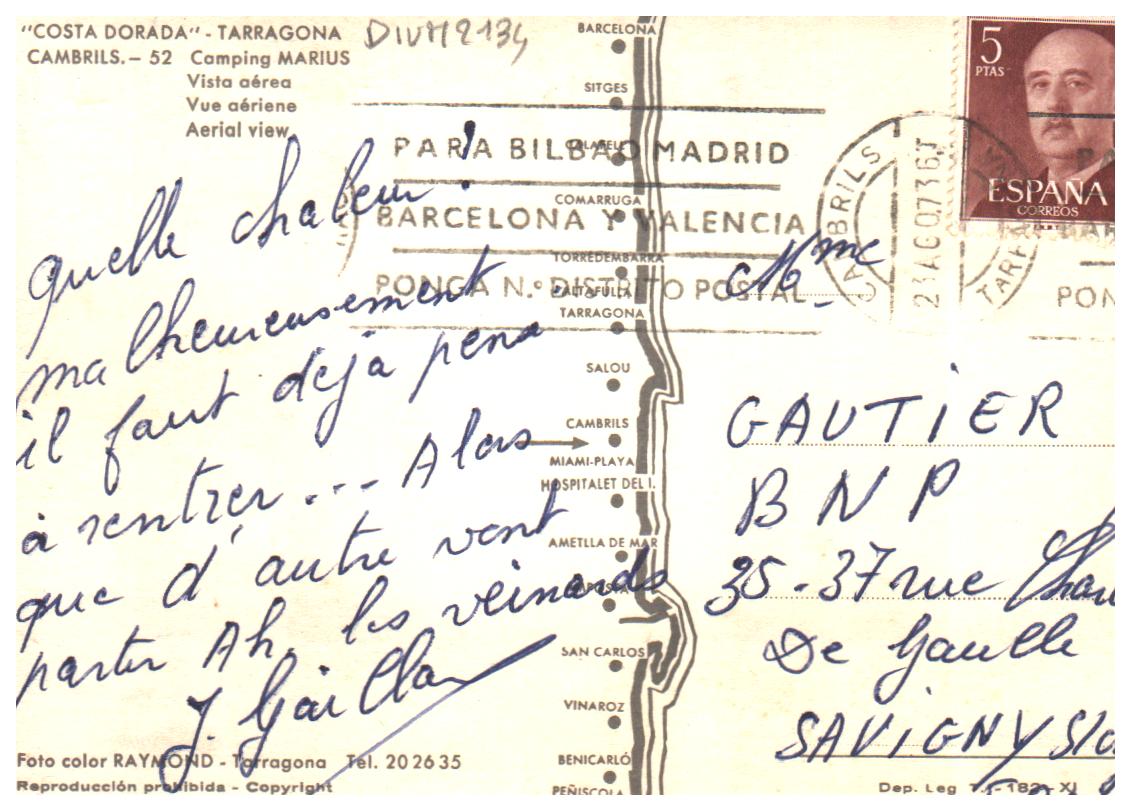 "COSTA DORADA" - TARRAGONA
CAMBRILS. - 52 Camping MARIUS
Vista aérea
Vue aériene
Aerial view
quelle chaleur !
malheureusement
il faut déjà pensé
à rentrer ... Alors
que d'autre vont
partir Ah. les veinards
BARCELONA
SITGES
CALAFELL
COMARRUGA
TORREDEMBARRA
ALTAFULLA
TARRAGONA
SALOU
CAMBRILS
MIAMI-PLAYA
HOSPITALET DEL I.
AMETLLA DE MAR
SAN CARLOS
VINAROZ
BENICARLÓ
PEÑISCOLA
PARA BILBAO MADRID
BARCELONA Y VALENCIA
PONGA N.º DISTRITO POSTAL
CAMBRILS
TARR
5
PTAS
ESPAÑA
CORREOS
PON
Mme
GAUTiER
BNP
35-37 rue Char
De Gaulle
SAViGNY S/O
Foto color RAYMOND - Tarragona Tel. 20 26 35
Reproducción prohibida - Copyright
Dep. Leg